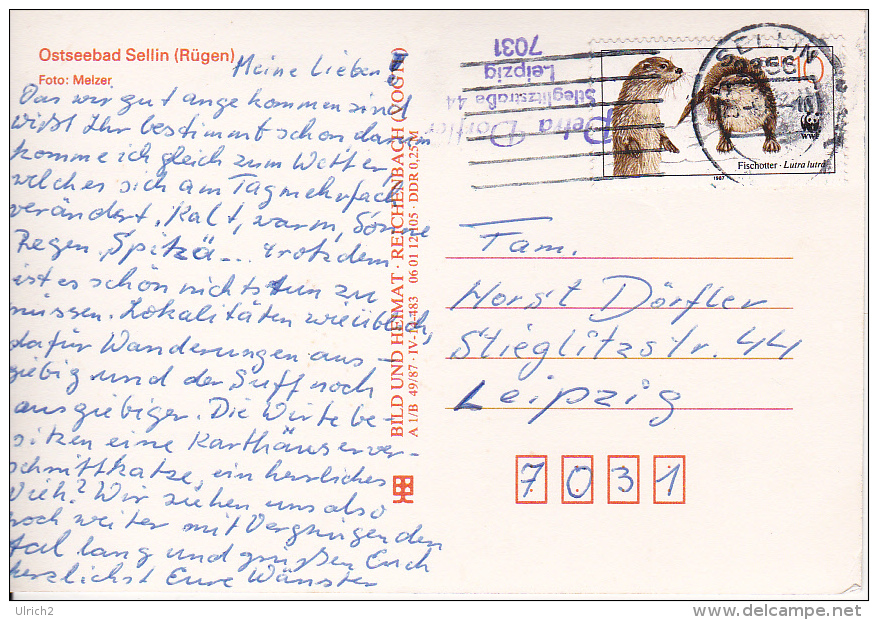 Ostseebad Sellin (Rügen)
Foto: Melzer
Meine Lieben
Das wir gut angekommen sind
wißt Ihr bestimmt schon darum
komme ich gleich zum Wetter,
welches sich am Tag mehrfach
verändert. Kalt, warm, Sonne
Regen, Spitzä... trotzdem
ist es schön nichts tun zu
müssen. Lokalitäten wie üblich,
dafür Wanderungen aus-
giebig und der Suff noch
ausgiebiger. Die Wirte be-
sitzen eine Karthäuserver-
schnittkatze, ein herrliches
Vieh? Wir ziehen uns also
noch weiter mit Vergnügen den
lang und grüßen Euch
herzlichst Eure Wänster
BILD UND HEIMAT · REICHENBACH (VOGTL)
A 1/B 49/87 · IV-14-483 06 01 12 105 · DDR 0,25 M
Petra Dörfler
Stieglitzstraße 44
Leipzig
7031
SELLIN
2356
10
WWF
Fischotter · Lutra lutra
1987
Fam.
Horst Dörfler
Stieglitzstr. 44
Leipzig
7031
Ulrich2
delcampe.net